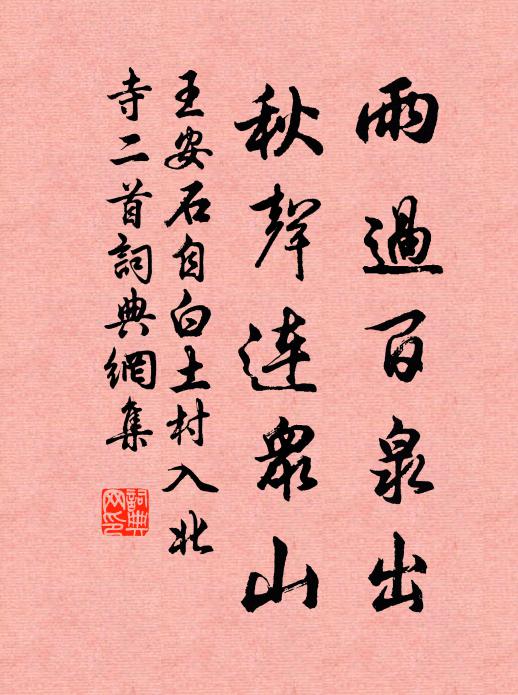 雨過百泉出
秋聲連眾山
王安石自白土村入北
寺二首詞典網集
詞典
网印